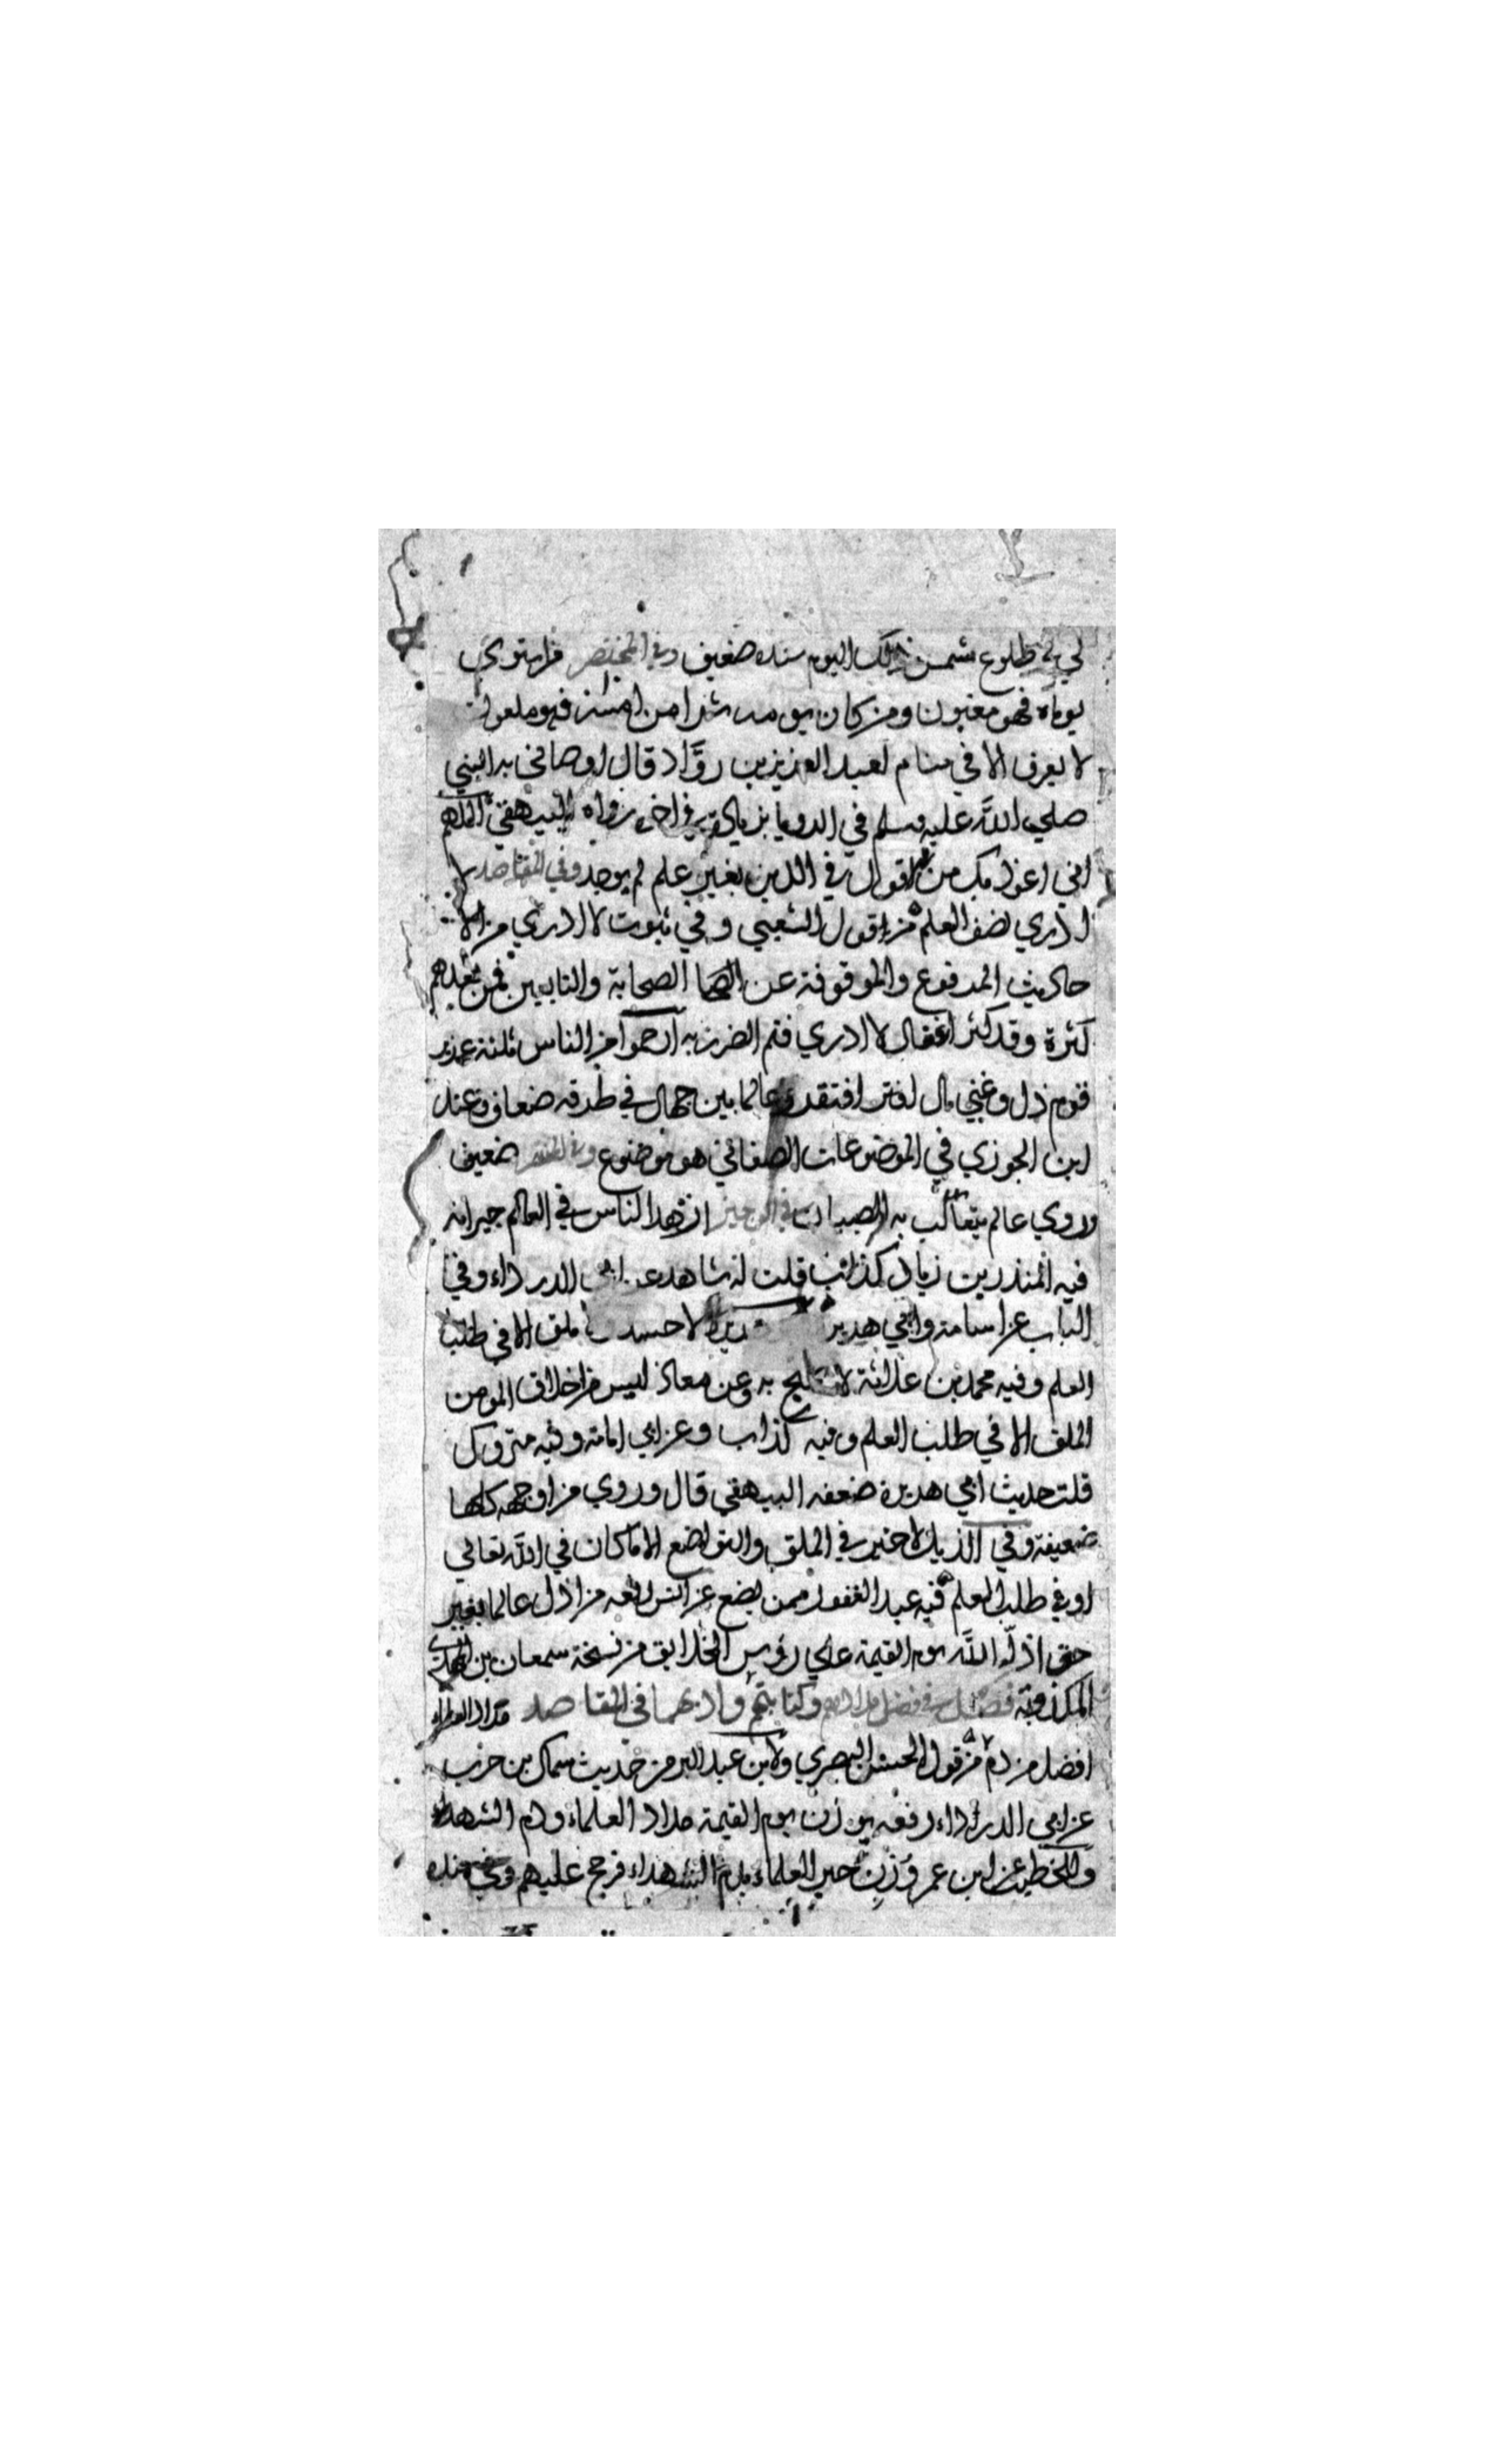 لي في طلوع شمس ذلك اليوم سنده ضعيف وفي المختصر من استوي
يوماه فهو مغبون ومن كان يومه شرا من امسه فهو ملعون
لا يعرف الا في منام لعبد العزيز بن روّاد قال اوصاني به النبي
صلي الله عليه وسلم في الرويا بزيادة في اخره رواه البيهقي اللهم
اني اعوذ بك من ان اقول في الدين بغير علم لم يوجد وفي المقاصد لا
ادري نصف العلم من قول الشعبي وفي ثبوت لا ادري من الا
حاديث المرفوع والموقوفة عن الصحابة والتابعين فمن بعدهم
كثرة وقد كثر اغفال لا ادري فتم الضرر به ارحموا من الناس ثلثة عزيز
قوم ذل وغني مال افتقد وعالما بين جهال في طرقه ضعاف وعند
ابن الجوزي في الموضوعات الصغاني هو موضوع وفي المختصر ضعيف
وروي عالم يتعالب به الصبيان في الوجيز ازهد الناس في العالم جيرانه
فيه المنذر بن زياد كذاب قلت له شاهد عن ابي الدرداء وفي
الباب عن اسامة وابي هريرة لا حسد ولا ملق الا في طلب
العلم وفيه محمد بن علاثة لا يحتج به وعن معاذ ليس من اخلاق المومن
الملق الا في طلب العلم وفيه كذاب وعن ابي امامة وفيه متروك
قلت حديث ابي هريرة ضعفه البيهقي قال وروي من اوجه كلها
ضعيفة وفي الذيل لا خير في الملق والتواضع الا ما كان في الله تعالي
او في طلب العلم فيه عبد الغفور ممن يضع عن انس رفعه من اذل عالما بغير
حق اذلّه الله يوم القيمة علي رؤس الخلايق من نسخة سمعان بن المهدي
المكذوبة فصل في فضل مدادهم وكتابتهم وادبهما في المقاصد مداد العلماء
افضل من دم من قول الحسن البصري ولابن عبد البر من حديث سماك بن حرب
عن ابي الدرداء رفعه يوزن يوم القيمة مداد العلماء ودم الشهداء
وللخطيب عن ابن عمر وزن حبر العلماء بدم الشهداء فرجح عليهم وفي سنده